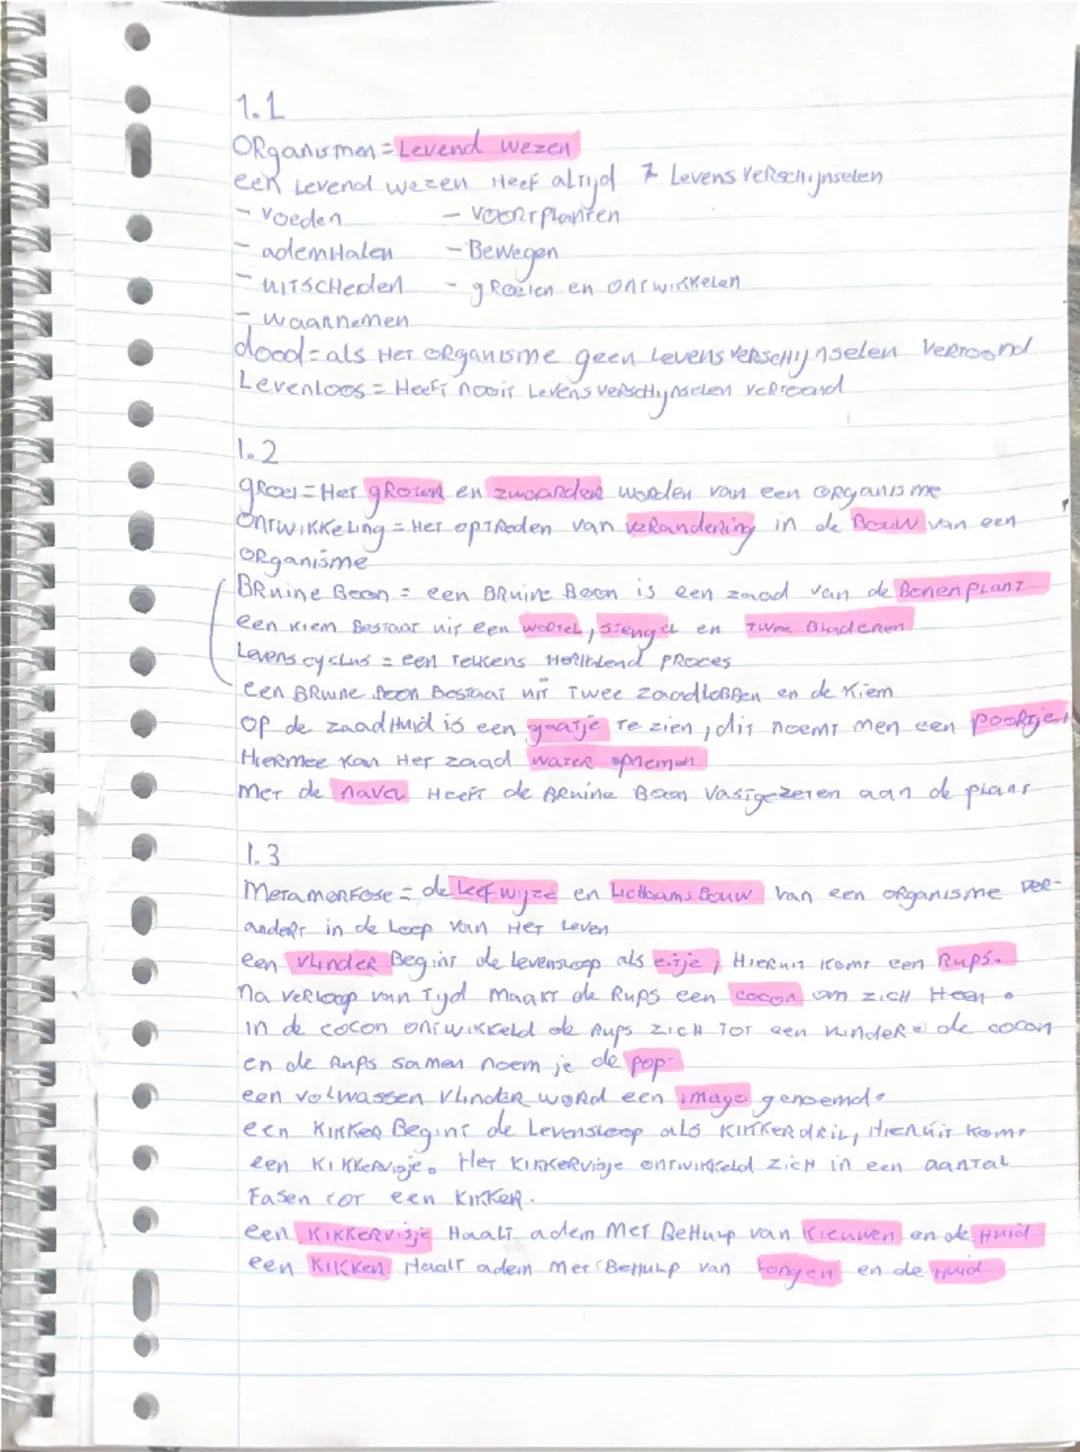 1.1
Organismen = Levend wezen
een Levend wezen Heef altijd 7 Levensverschijnselen
- voeden - voortplanten
- ademHalen - Bewegen
- uitscheden - groeien en ontwikkelen
- waarnemen
dood = als Het organisme geen Levensverschijnselen vertoond
Levenloos = Heeft nooit Levensverschijnselen vertoond
1.2
groei = Het groten en zwaarder worden van een organisme
Ontwikkeling = Het optreden van verandering in de Bouw van een
organisme
Bruine Boon = een Bruine Boon is een zaad van de Bonenplant
een kiem Bestaat uit een wortel, stengel en Twee Bladeren
Levenscyclus = een telkens Herhalend proces
een Bruine Boon Bestaat uit Twee zaadloBBen en de kiem
op de zaadHuid is een gaatje te zien, dit noemt men een poortje,
Hiermee kan Het zaad water opnemen
met de navel Heeft de Bruine Boon vastgezeten aan de plant
1.3
Metamorfose = de Leefwijze en LichaamsBouw van een organisme ver-
andert in de Loop van Het Leven
een vlinder Begint de levensloop als eitje, Hieruit komt een Rups.
na verloop van tijd maakt de Rups een cocon om zich Heen.
in de cocon ontwikkeld de Rups zich tot een vlinder. de cocon
en de Rups samen noem je de pop.
een volwassen vlinder word een imago genoemd.
een kikker Begint de Levensloop als kikkerdril, Hieruit komt
een kikkervisje. Het kikkervisje ontwikkeld zich in een aantal
Fasen tot een kikker.
een kikkervisje Haalt adem Met BeHulp van kieuwen en de Huid
een kikker Haalt adem Met BeHulp van Longen en de Huid